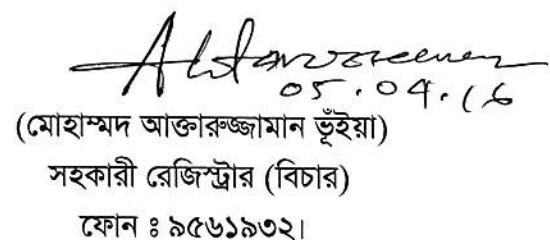 05.04.16
(মোহাম্মদ আক্তারুজ্জামান ভূঁইয়া)
সহকারী রেজিস্ট্রার (বিচার)
ফোন ঃ ৯৫৬১৯৩২।